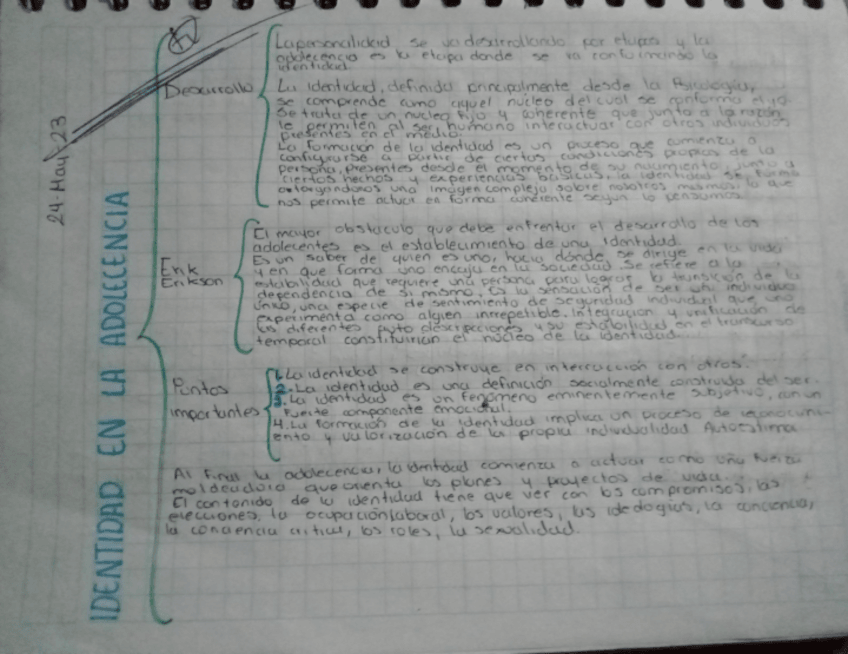 24-May-23
IDENTIDAD EN LA ADOLECENCIA
Desarrollo
La personalidad se va desarrollando por etapas y la
adolecencia es la etapa donde se va conformando la
identidad
La identidad, definida principalmente desde la Psicologia,
se comprende como aquel nucleo del cual se conforma el yo.
Se trata de un nucleo fijo y coherente que junto a la razón
le permiten al ser humano interactuar con otros individuos
presentes en el medio.
La formación de la identidad es un proceso que comienza a
configurarse a partir de ciertas condiciones propias de la
persona, presentes desde el momento de su nacimiento, junto a
ciertos hechos y experiencias basicas, la identidad se forma
otorgandonos una imagen compleja sobre nosotros mismos, lo que
nos permite actuar en forma coherente segun lo pensamos.
Erik
Erikson
El mayor obstaculo que debe enfrentar el desarrollo de los
adolecentes es el establecimiento de una identidad.
Es un saber de quien es uno, hacia dónde se dirige en la vida
y en que forma uno encaja en la sociedad. Se refiere a la
estabilidad que requiere una persona para lograr la transición de la
dependencia de si mismo. Es la sensación de ser un individuo
único, una especie de sentimiento de seguridad individual que uno
experimenta como algien irrepetible. Integracion y unificación de
las diferentes auto descripciones y su estabilidad en el transcurso
temporal constituirian el núcleo de la identidad.
Puntos
importantes
1. La identidad se construye en interacción con otros.
2. La identidad es una definición socialmente construida del ser.
3. La identidad es un fenomeno eminentemente subjetivo, con un
fuerte componente emocional.
4. La formación de la identidad implica un proceso de reconocimi-
ento y valorización de la propia individualidad Autoestima
Al final la adolecencia, la identidad comienza a actuar como una fuerza
moldeadora que orienta los planes y proyectos de vida.
El contonido de la identidad tiene que ver con los compromisos, las
elecciones, la ocupación laboral, los valores, las idedogias, la conciencia,
la conciencia critica, los roles, la sexualidad.